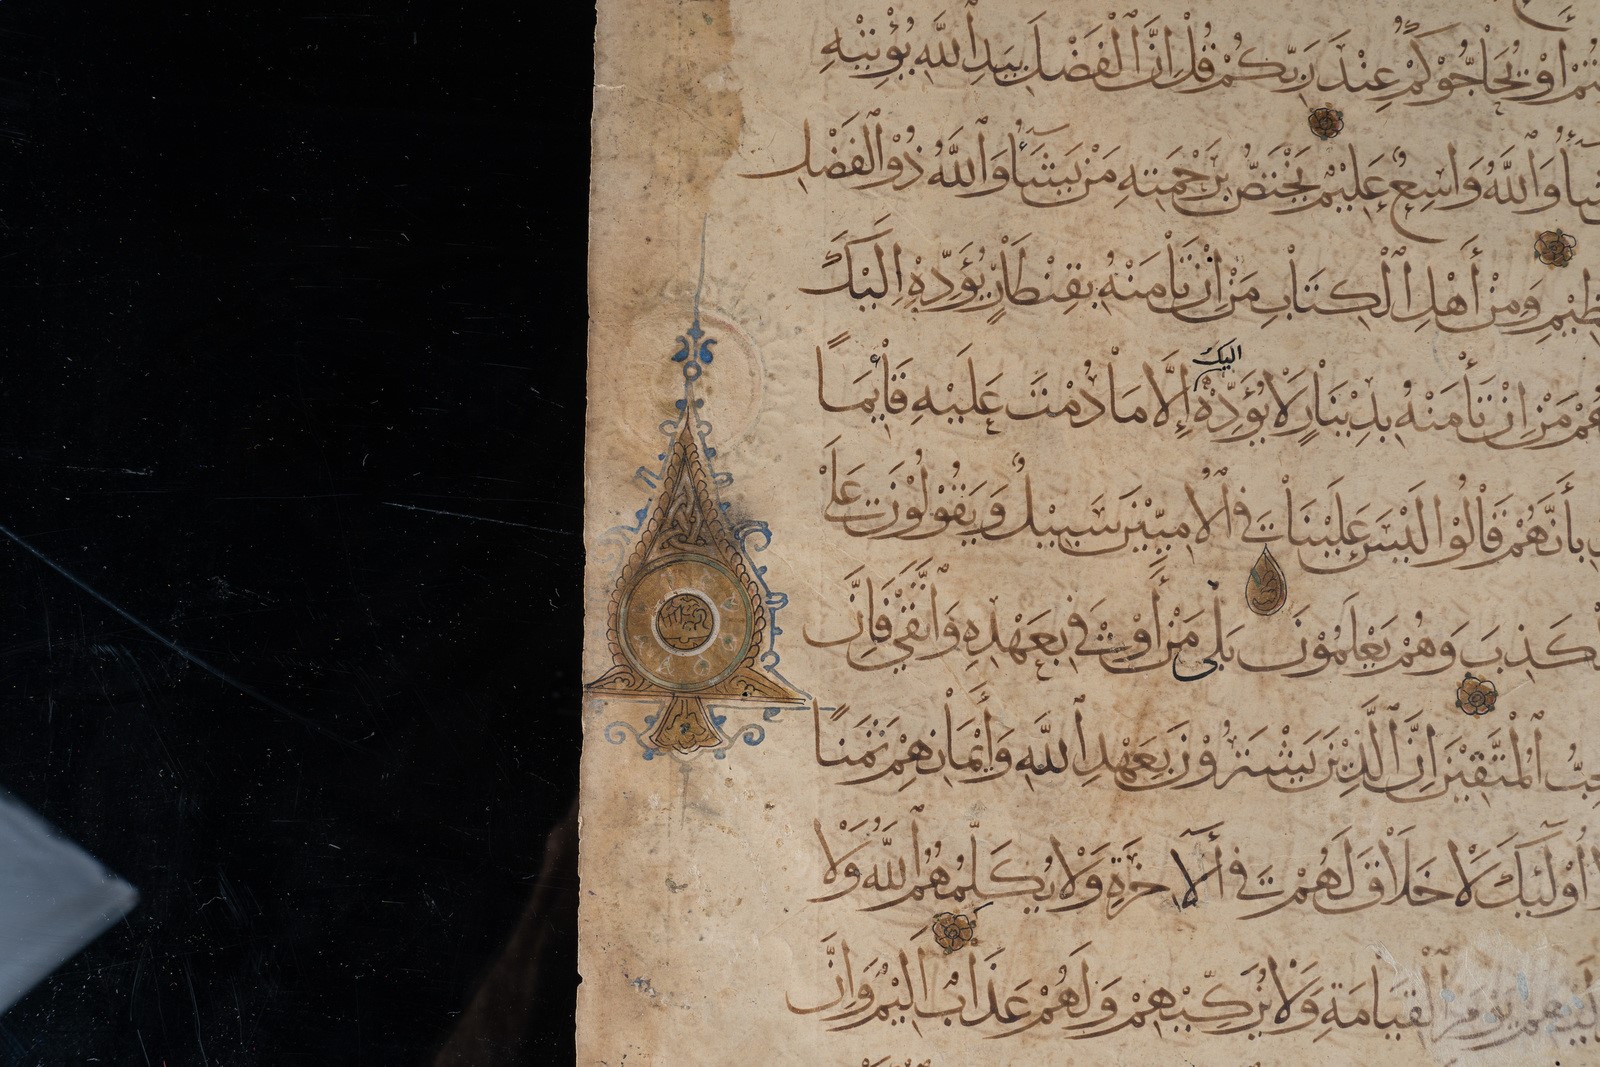 أَوْ يُحَاجُّوكُمْ عِنْدَ رَبِّكُمْ قُلْ اِنَّ الْفَضْلَ بِيَدِ اللَّهِ يُؤْتِيْهِ
وَاللَّهُ وَاسِعٌ عَلِيْمٌ يَخْتَصُّ بِرَحْمَتِهِ مَنْ يَشَآءُ وَاللَّهُ ذُو الْفَضْلِ
وَمِنْ أَهْلِ الْكِتَابِ مَنْ اِنْ تَأْمَنْهُ بِقِنْطَارٍ يُؤَدِّهِ اِلَيْكَ
مَنْ اِنْ تَأْمَنْهُ بِدِيْنَارٍ لَا يُؤَدِّهِ اليك إِلَّا مَا دُمْتَ عَلَيْهِ قَآئِمًا
بِأَنَّهُمْ قَالُوْا لَيْسَ عَلَيْنَا فِي الْاُمِّيِّيْنَ سَبِيْلٌ وَيَقُوْلُوْنَ عَلَى
الْكَذِبَ وَهُمْ يَعْلَمُوْنَ بَلَى مَنْ أَوْفَى بِعَهْدِهِ وَاتَّقَى فَاِنَّ
الْمُتَّقِيْنَ اِنَّ الَّذِيْنَ يَشْتَرُوْنَ بِعَهْدِ اللَّهِ وَأَيْمَانِهِمْ ثَمَنًا
اُوْلَئِكَ لَا خَلَاقَ لَهُمْ فِي الْآخِرَةِ وَلَا يُكَلِّمُهُمُ اللَّهُ وَلَا
يَوْمَ الْقِيَامَةِ وَلَا يُزَكِّيْهِمْ وَلَهُمْ عَذَابٌ اَلِيْمٌ وَاِنَّ